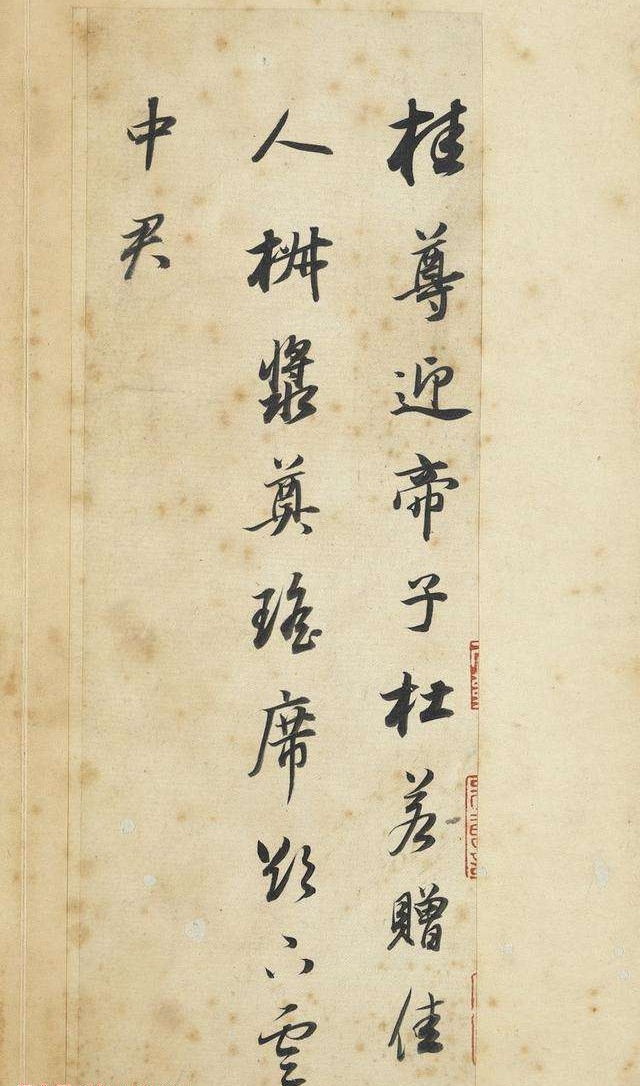 桂尊迎帝子杜若贈佳
人椒漿奠瑤席欲下雲
中君